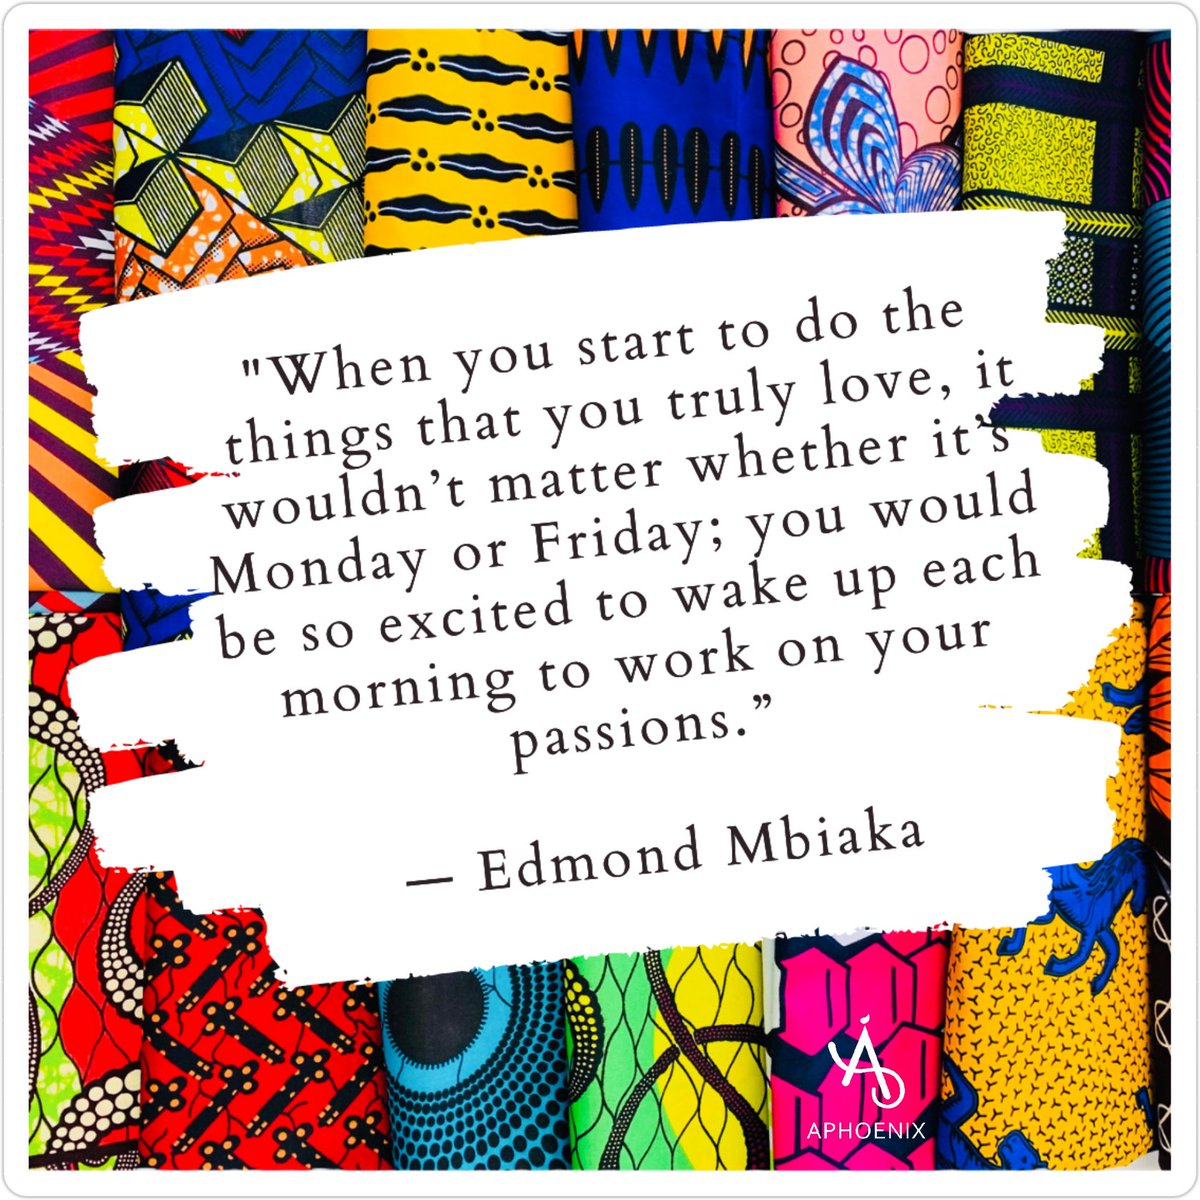 "When you start to do the
things that you truly love, it
wouldn’t matter whether it’s
Monday or Friday; you would
be so excited to wake up each
morning to work on your
passions.”
— Edmond Mbiaka
APHOENIX